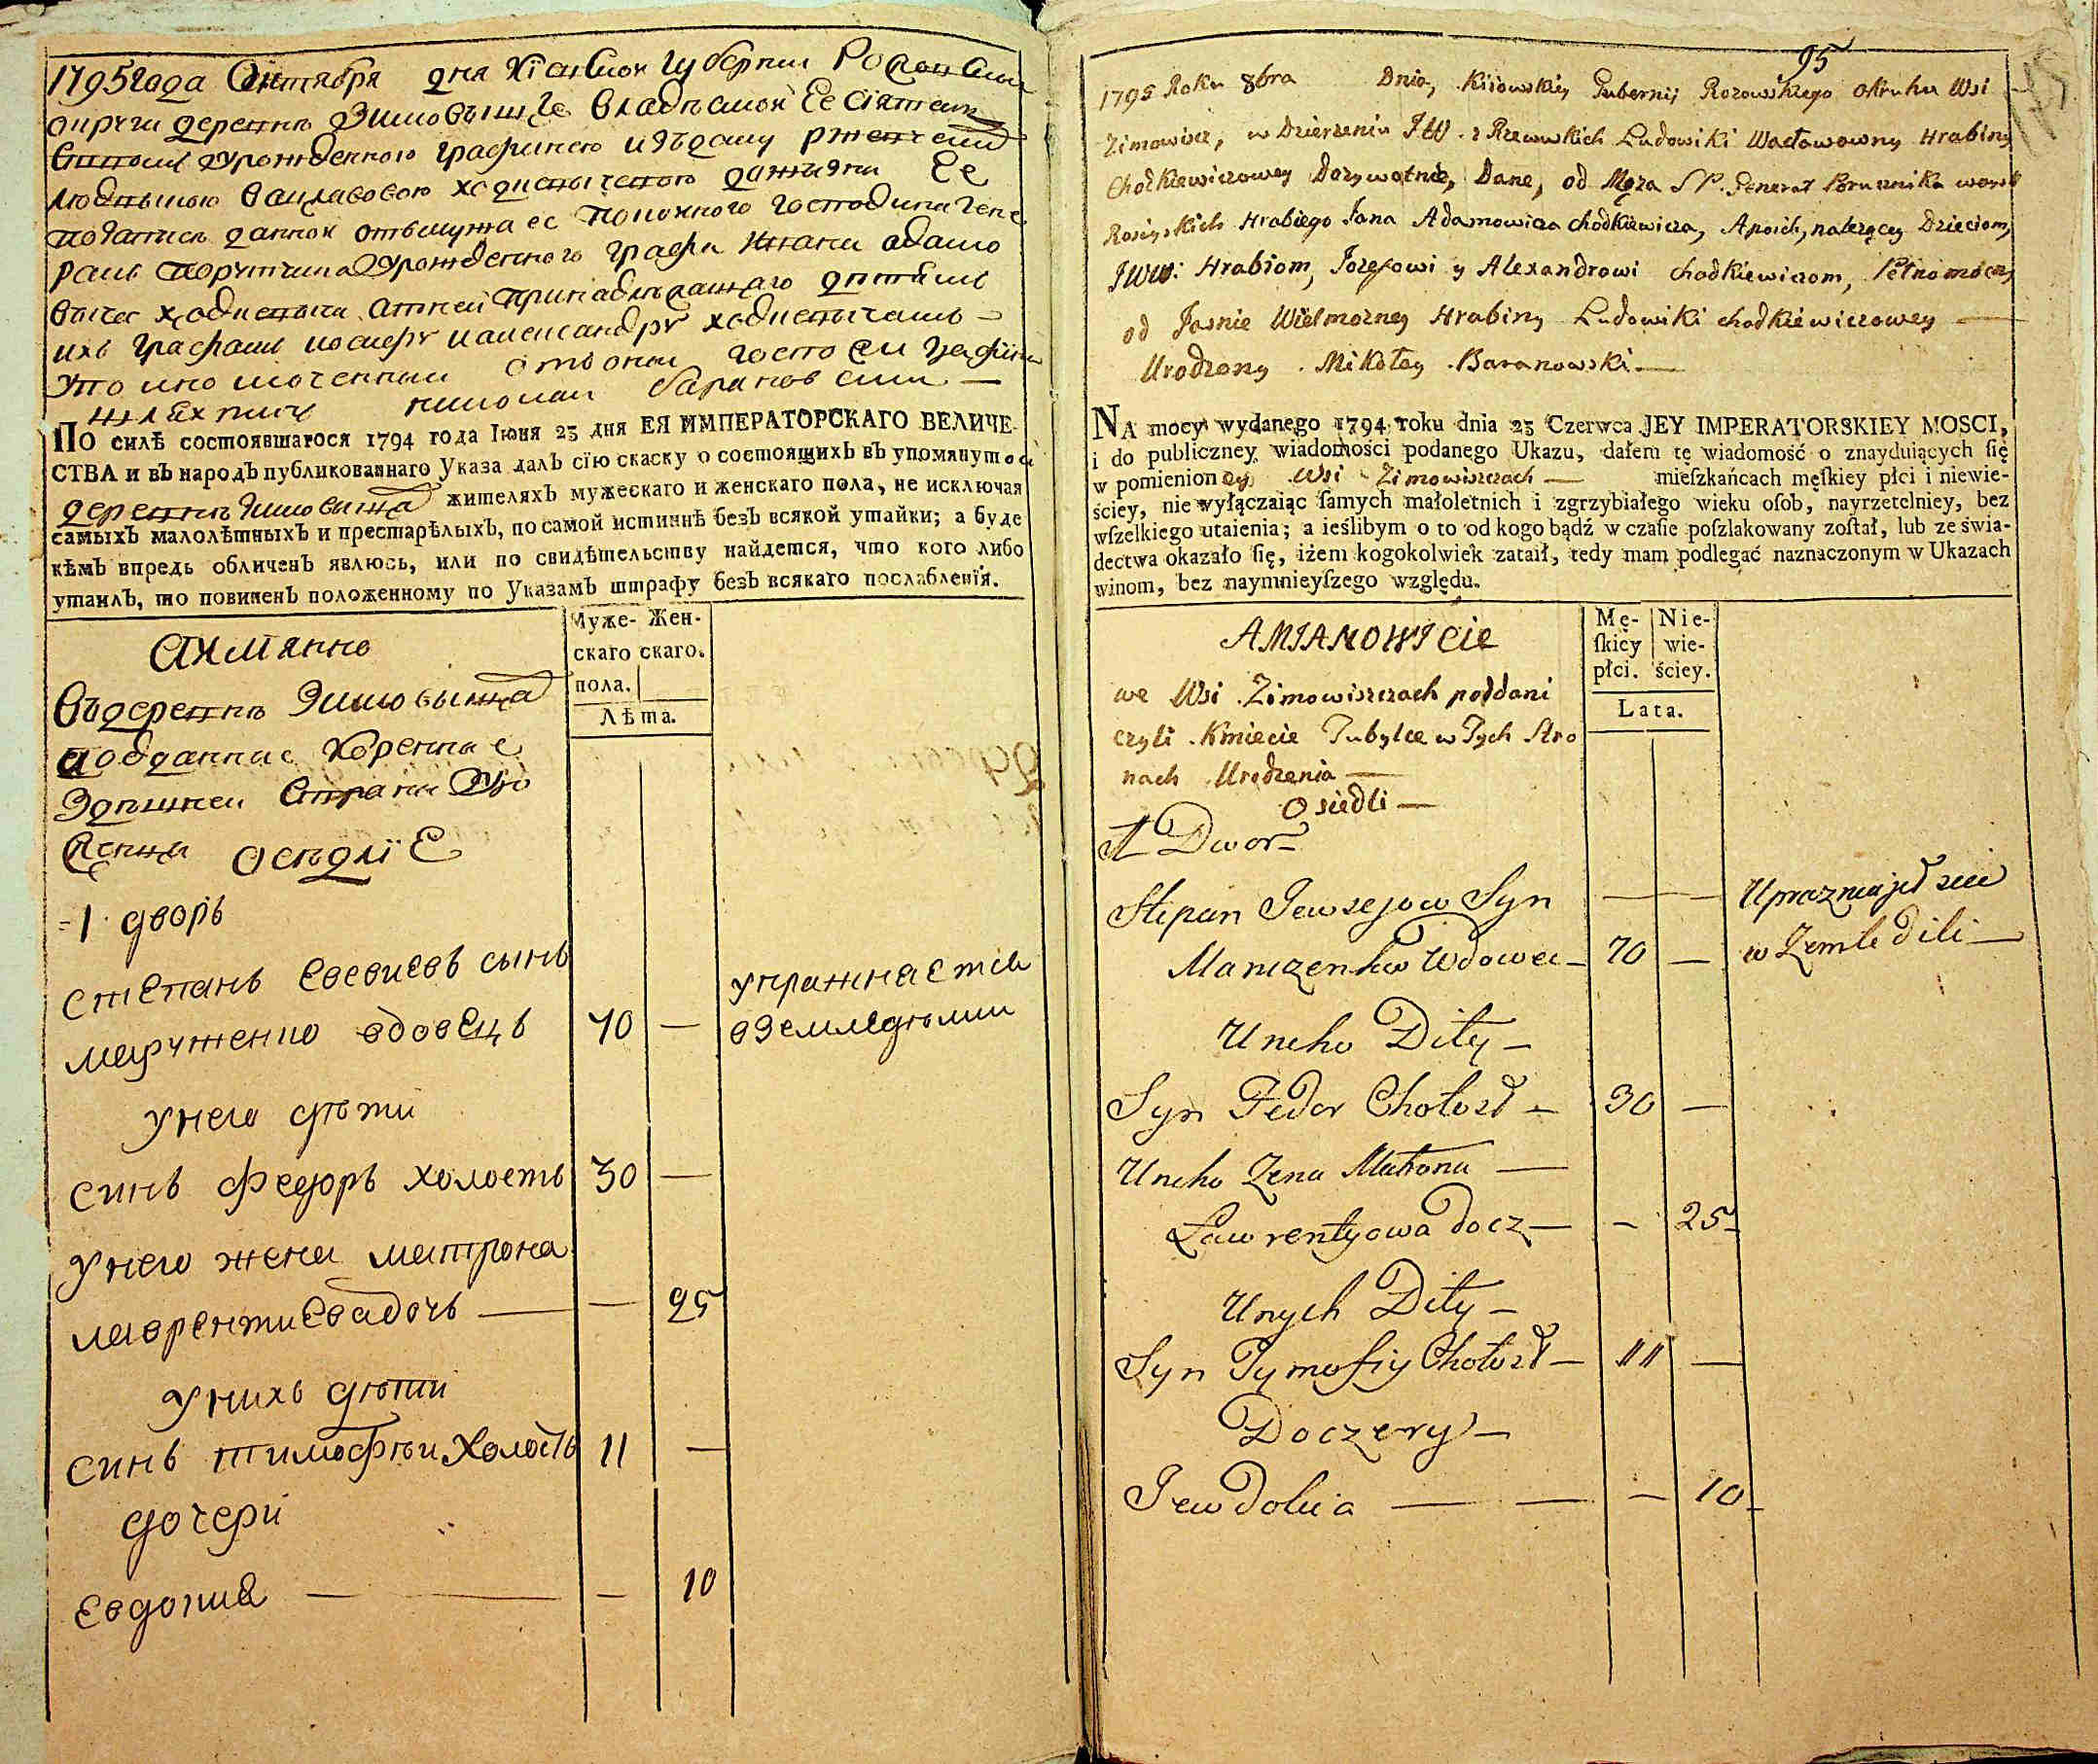 1795 года Октября дня Киевской Губернии
округи деревне Зимовыще
Людвикою Вацлавовою
по даннои отъ мужа ее покоиного господина Гене
ралъ порутчика урожденного Графа адамо
вича
ихъ Графамъ иосифу и александру ходкевичамъ
уполномоченныи
николаи барановскии
ПО силѣ состоявшагося 1794 года Іюня 23 дня ЕЯ ИМПЕРАТОРСКАГО ВЕЛИЧЕ-
СТВА и въ народъ публикованнаго Указа далъ сїю скаску о состоящихъ въ упомянутой
деревне Зимовища жителяхъ мужескаго и женскаго пола, не исключая
самыхъ малолѣтныхъ и престарѣлыхъ, по самой истиннѣ безъ всякой утайки; а буде
кѣмъ впредь обличенъ явлюсь, или по свидѣтельству найдется, что кого либо
утаилъ, то повиненъ положенному по Указамъ штрафу безъ всякаго послабленїя.
Муже- Жен-
скаго скаго.
пола.
Лѣта.
аимянно
въ деревне Зимовыща
подданние коренние
Здешнеи Страни
осѣдліе
1 дворъ
степанъ евсеиевъ сынъ
марчженко вдовецъ 70 — упражнаетсь
в земледѣлии
у него дѣти
синъ федоръ холостъ 30 —
у него жена матрона
лаврентиева дочь — — 25
у нихъ дѣти
синъ тимофѣи холостъ 11 —
дочери
евдокиа — — — 10
95
1795 Roku 8bra Dnia, Kiiowskiey Gubernij Rozowskiego okruhu Wsi
Zimowiszcz, w Dzierzeniu JW. z Rzewuskich Ludowiki Wacławowny Hrabiny
Chodkiewiczowey Dozywotnie, Dane, od Męza SP. Generał Porucznika woysk
Rosiyskich Hrabiego Jana Adamowicza Chodkiewicza, A poich, nalezącey Dzieciom,
JWW: Hrabiom, Jozefowi y Alexandrowi Chodkiewiczom, Pełnomocny
od Jasnie Wielmozney Hrabiny Ludowiki Chodkiewiczowey —
Urodzony Mikołay Baranowski —
NA mocy wydanego 1794 roku dnia 23 Czerwca JEY IMPERATORSKIEY MOSCI,
i do publiczney wiadomości podanego Ukazu, dałem tę wiadomość o znayduiących się
w pomienioney Wsi Zimowiszczach — mieſzkańcach męſkiey płci i niewie-
ściey, nie wyłączaiąc ſamych małoletnich i zgrzybiałego wieku oſob, nayrzetelniey, bez
wſzelkiego utaienia; a ieślibym o to od kogo bądź w czaſie poſzlakowany zoſtał, lub ze świa-
dectwa okazało się, iżem kogokolwiek zataił, tedy mam podlegać naznaczonym w Ukazach
winom, bez naymnieyſzego względu.
Mę- Nie-
ſkiey wie-
płci. ściey.
Lata.
AMIANOWICIE
we Wsi Zimowiszczach poddani
czyli Kmiecie Tubylce w Tych Stro
nach Urodzenia —
Osiedli —
1 Dwor
Stepan Jewsejow Syn — — Uprazniajet sie
Marczenko Wdowec — 70 — w Zemledili —
Uneho Dity —
Syn Fedor Chołost — 30 —
Uneho Zena Matrona —
Ławrentyowa docz — — 25
Unych Dity —
Syn Tymofiy Chołost — 11 —
Doczery —
Jewdokia — — — 10